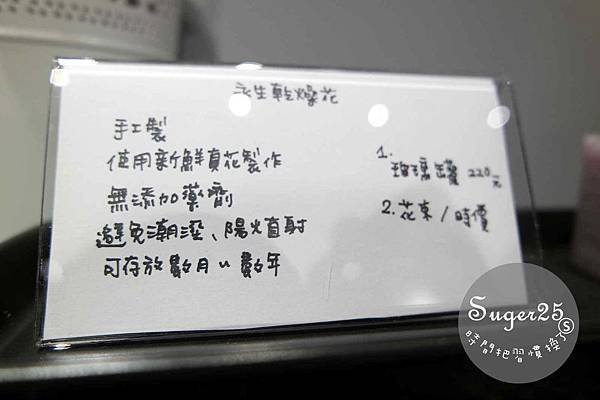 永生乾燥花
手工製
使用新鮮真花製作
無添加藥劑
避免潮溼、陽光直射
可存放數月~數年
1.
玻璃罐 220元
2.花束/時價
Suger25
時間把習慣換了
S